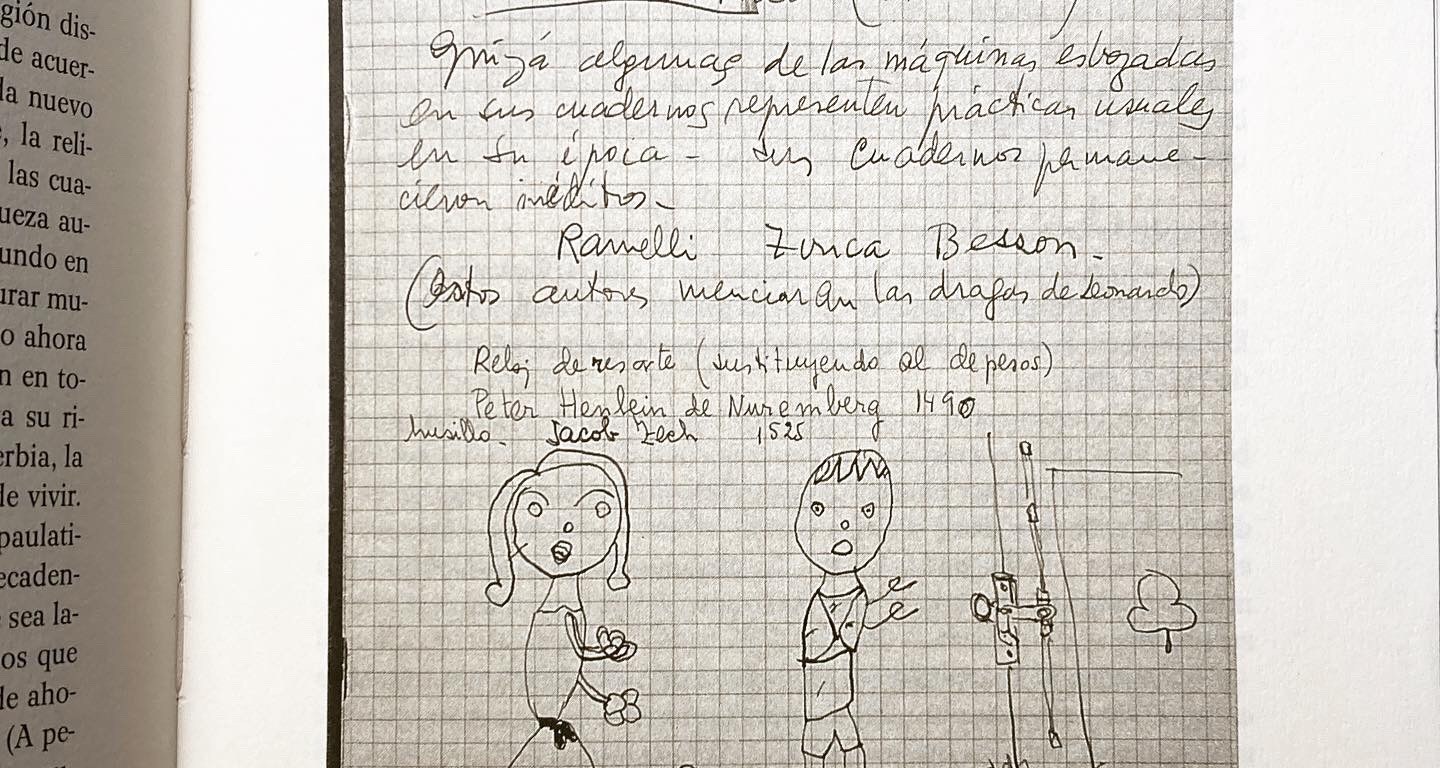 gión dis-
de acuer-
la nuevo
, la reli-
las cua-
ueza au-
undo en
urar mu-
o ahora
n en to-
a su ri-
erbia, la
de vivir.
paulati-
ecaden-
sea la-
os que
de aho-
(A pe-
Quizá algunas de las máquinas esbozadas
en sus cuadernos representen prácticas usuales
en su época - sus cuadernos permane-
cieron inéditos -
Ramelli Zonca Besson -
(estos autores mencionan las dragas de Leonardo)
Reloj de resorte (sustituyendo al de pesos)
Peter Henlein de Nuremberg 1490
husillo - Jacob Zech 1525